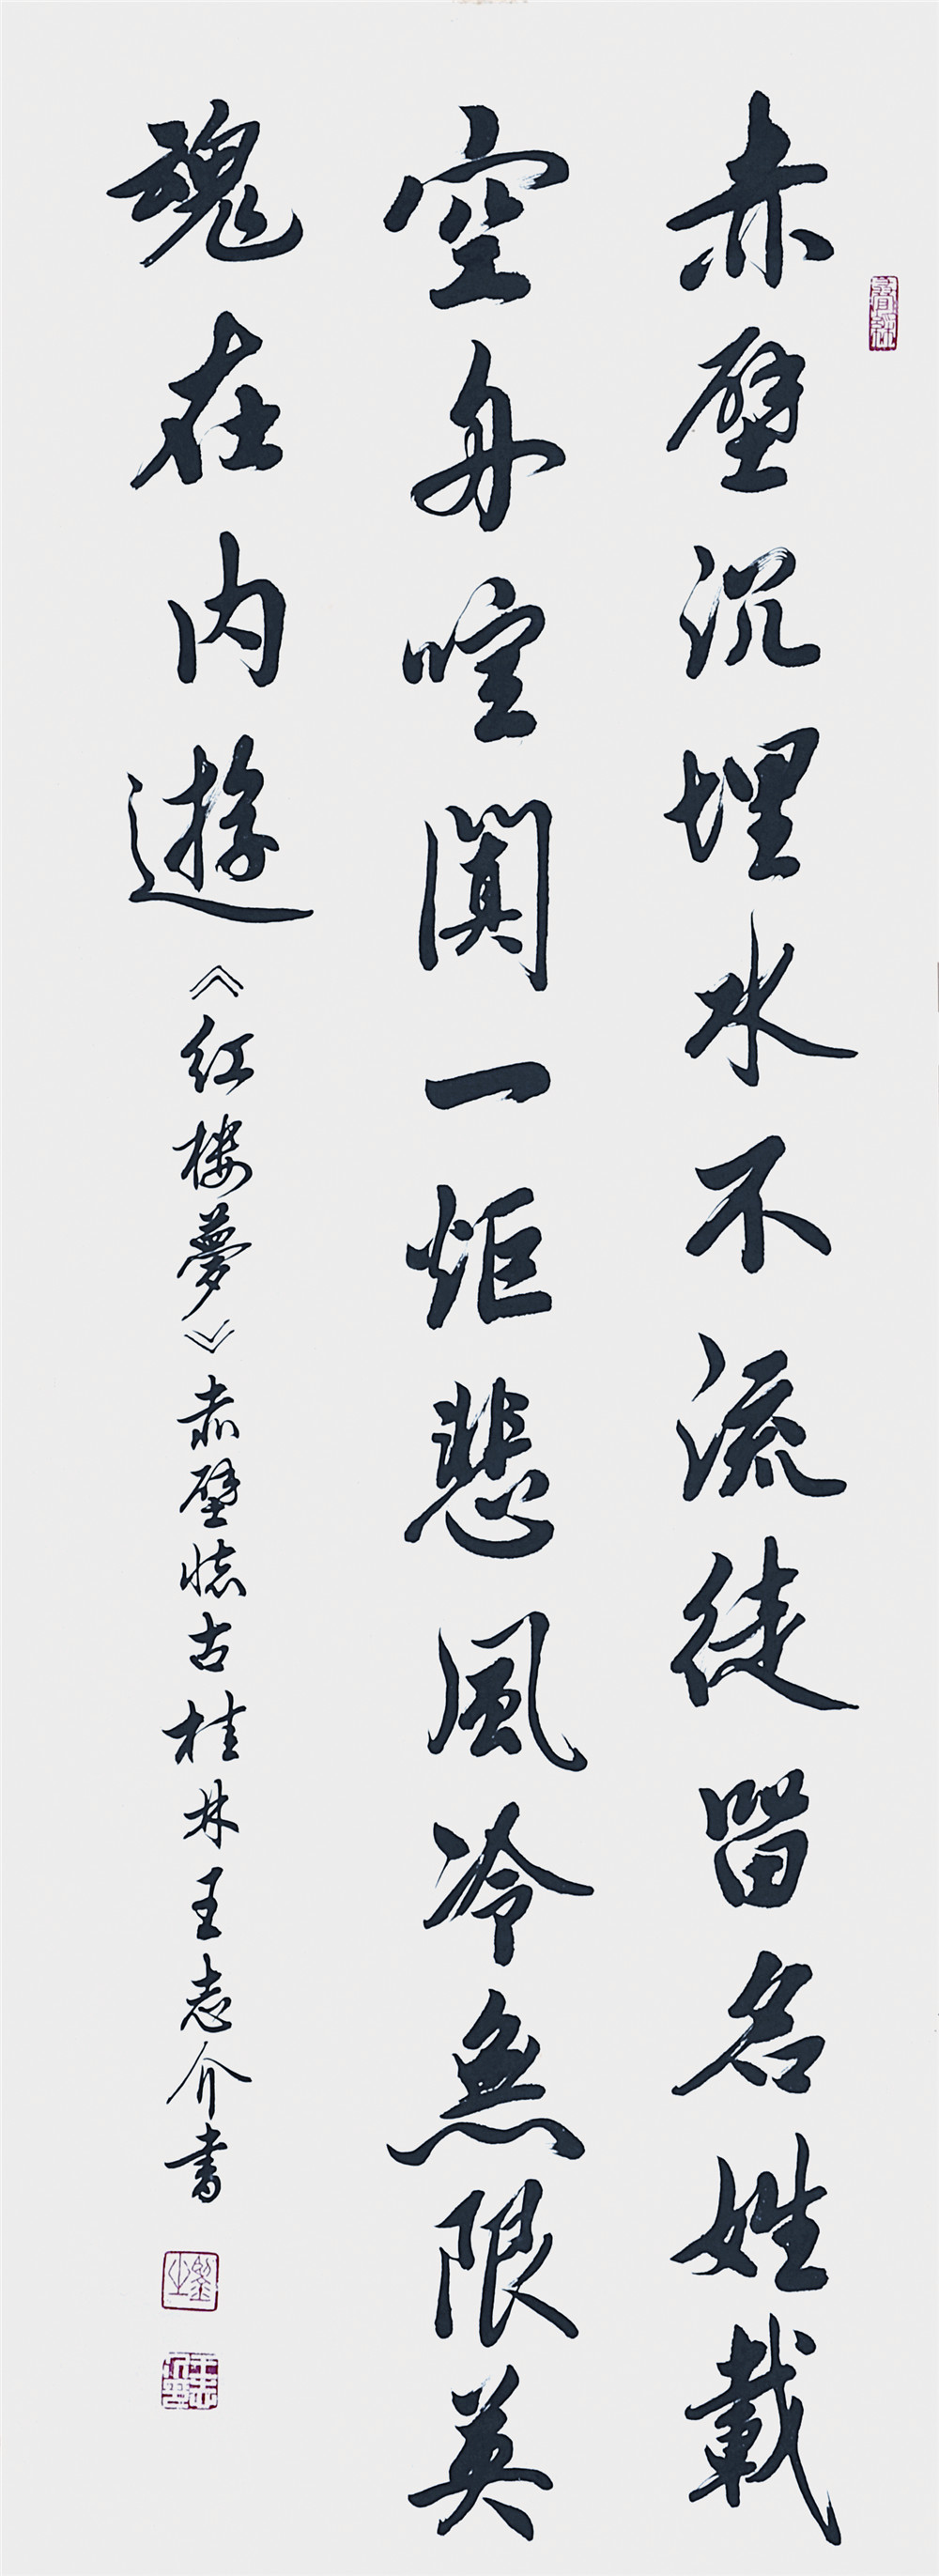 赤壁沉埋水不流徒留名姓載
空舟喧闐一炬悲風冷無限英
魂在内遊
《红楼夢》赤壁懷古桂林王志介書